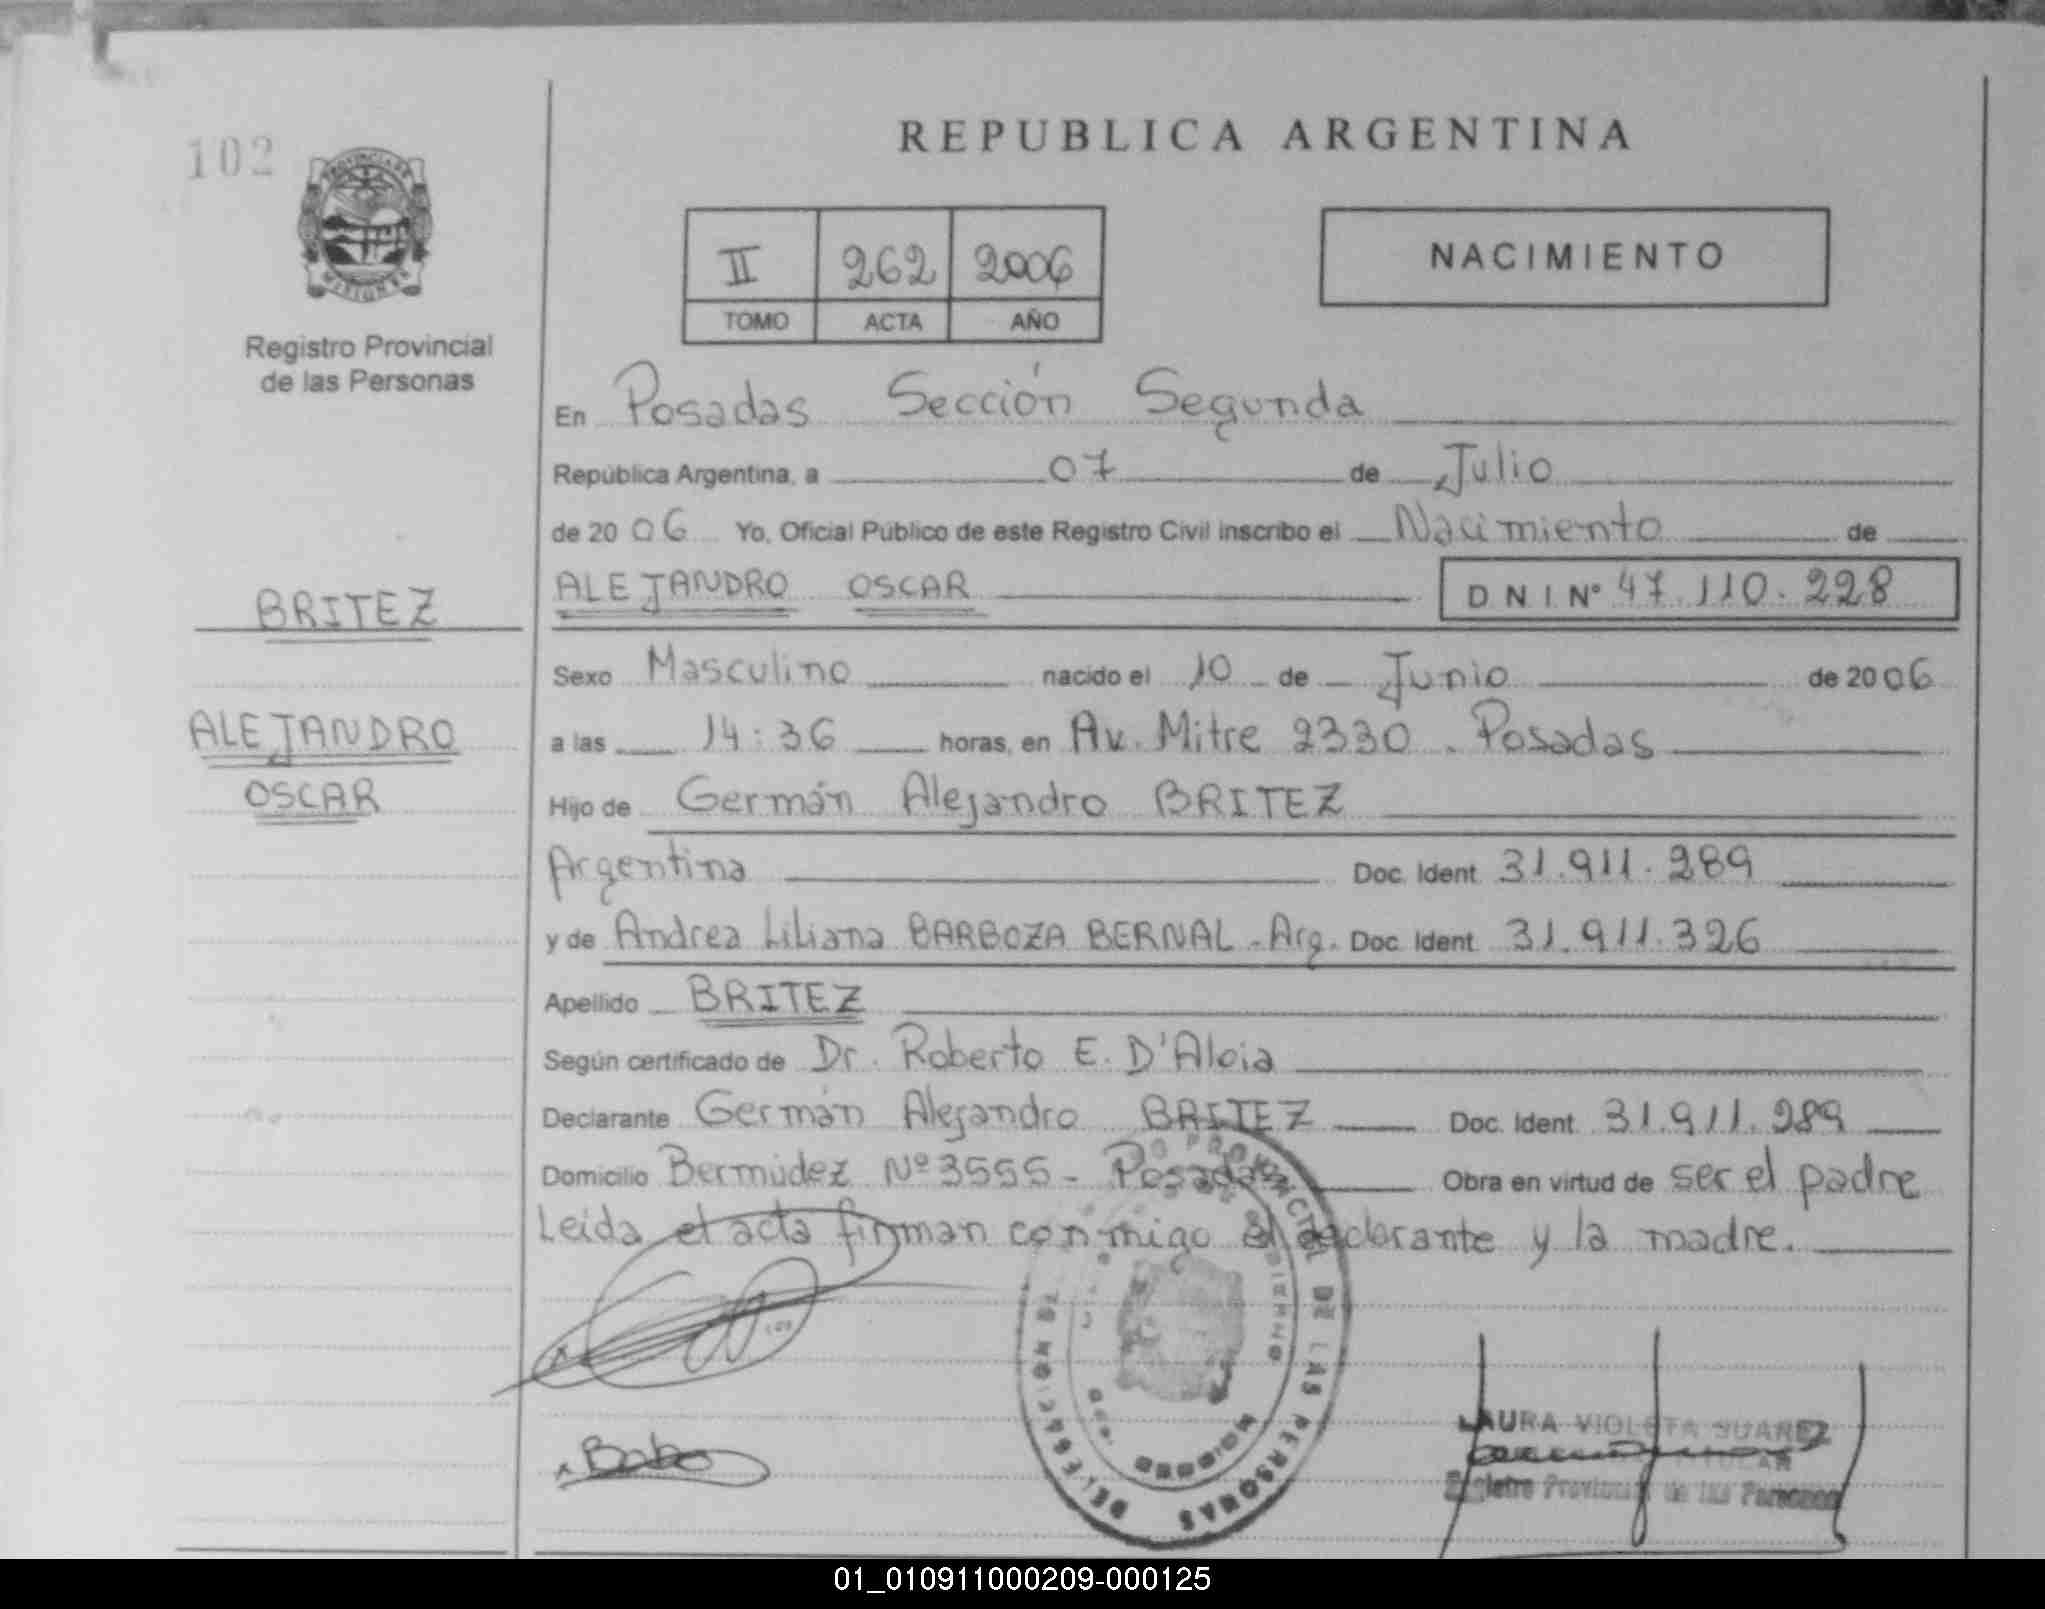 REPUBLICA ARGENTINA
102
PROVINCIA DE
MISIONES
Registro Provincial
de las Personas
II 262 2006
TOMO ACTA AÑO
NACIMIENTO
En Posadas Sección Segunda
República Argentina, a 07 de Julio
de 2006 Yo, Oficial Público de este Registro Civil inscribo el Nacimiento de
ALEJANDRO OSCAR D N I Nº 47.110.228
BRITEZ
ALEJANDRO
OSCAR
Sexo Masculino nacido el 10 de Junio de 2006
a las 14:36 horas, en Av. Mitre 2330. Posadas
Hijo de Germán Alejandro BRITEZ
Argentina Doc. Ident 31.911.289
y de Andrea Liliana BARBOZA BERNAL - Arg. Doc. Ident 31.911.326
Apellido BRITEZ
Según certificado de Dr. Roberto E. D'Aloia
Declarante Germán Alejandro BRITEZ Doc. Ident 31.911.289
Domicilio Bermúdez Nº 3555 - Posadas Obra en virtud de ser el padre
Leida el acta firman conmigo el declarante y la madre.
PROVINCIAL DE LAS PERSONAS
MISIONES
LAURA VIOLETA SUAREZ
TITULAR
Registro Provincial de las Personas
01_010911000209-000125